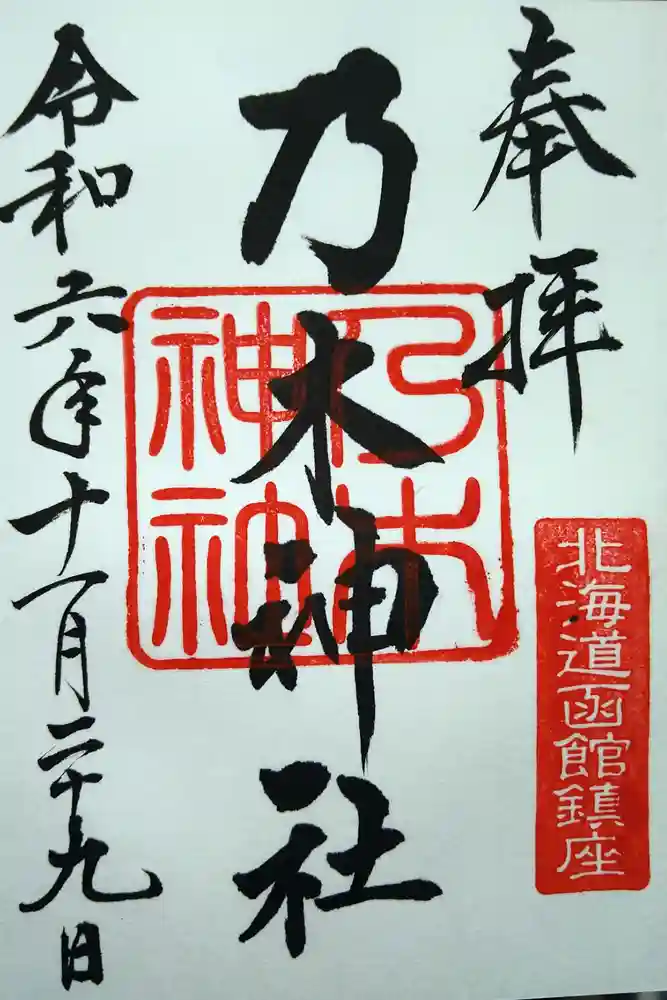 奉拝
北海道函館鎮座
乃木神社
乃木神社
令和六年十一月二十九日